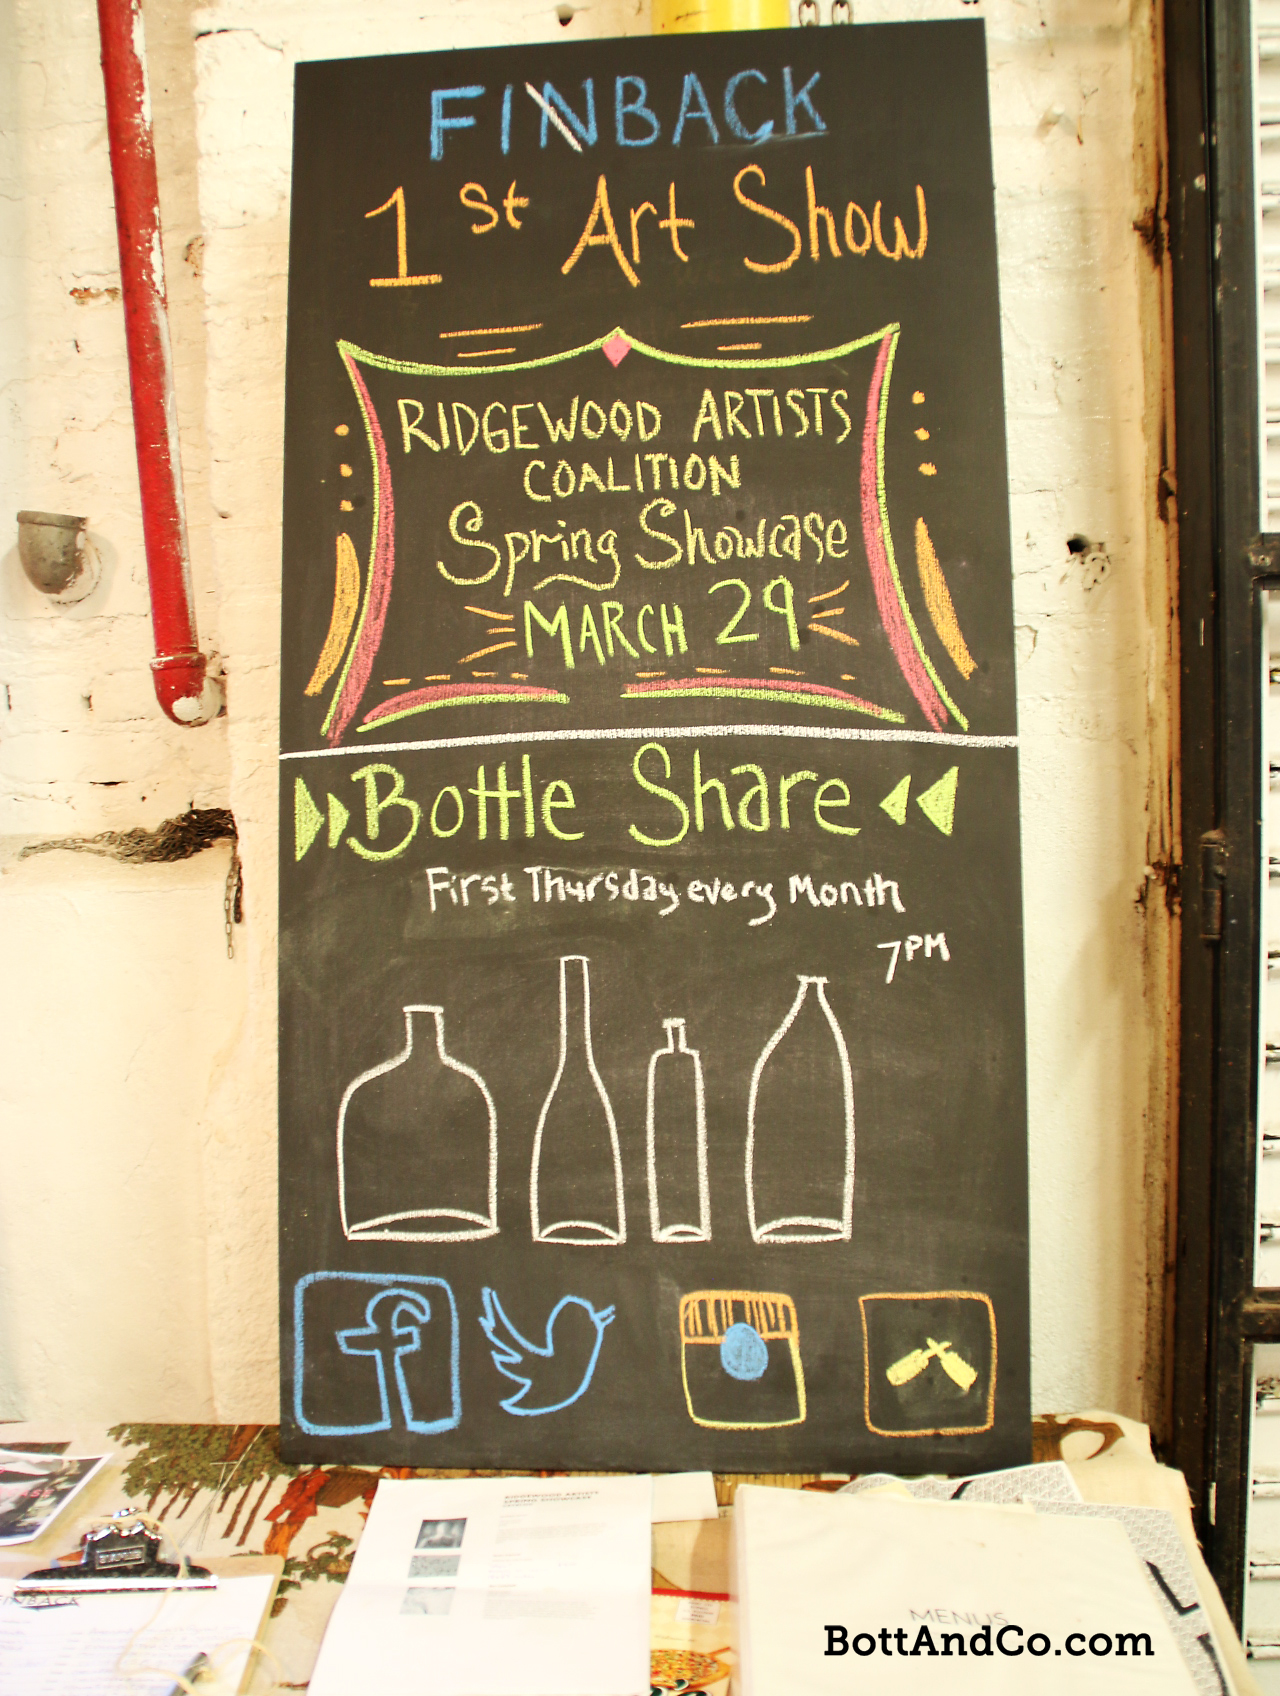 FINBACK
1st Art Show
RIDGEWOOD ARTISTS
COALITION
Spring Showcase
MARCH 29
Bottle Share
First Thursday every Month
7PM
RIDGEWOOD ARTISTS
SPRING SHOWCASE
FINBACK
MENUS
BottAndCo.com